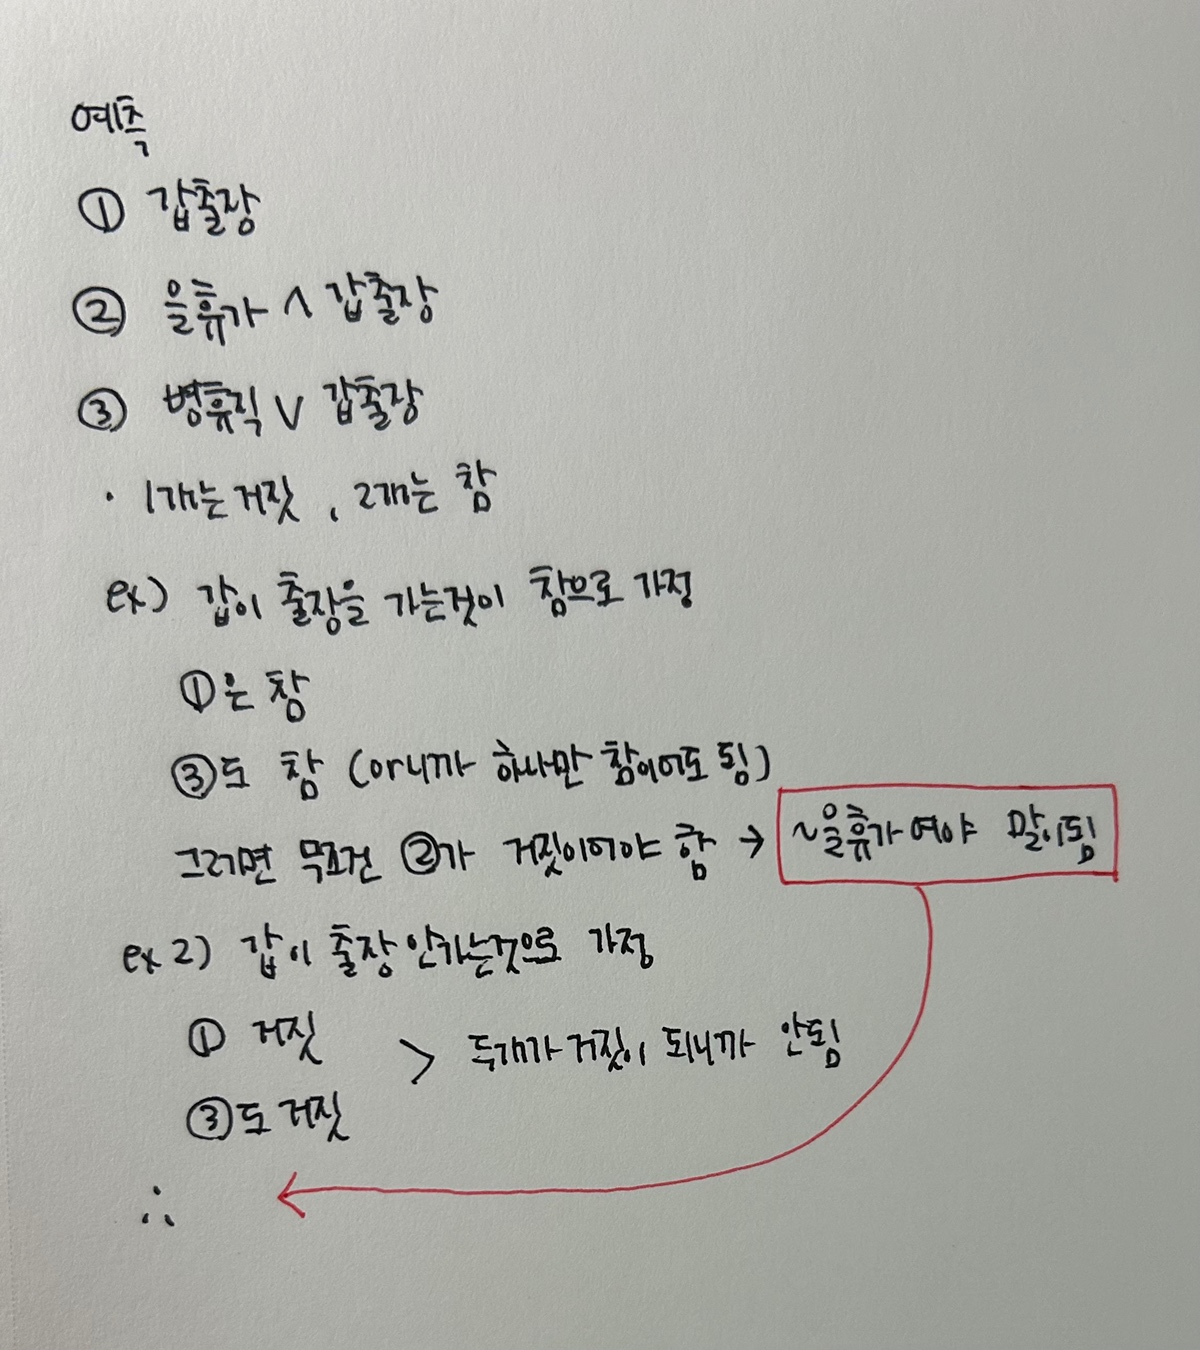 예측
① 갑출장
② 을휴가 ∧ 갑출장
③ 병휴직 ∨ 갑출장
· 1개는 거짓, 2개는 참
ex) 갑이 출장을 가는것이 참으로 가정
①은 참
③도 참 (or니까 하나만 참이어도 됨)
그러면 무조건 ②가 거짓이어야 함 → ~을휴가여야 말이됨
ex2) 갑이 출장 안가는것으로 가정
① 거짓 > 두개가 거짓이 되니까 안됨
③도 거짓
∴